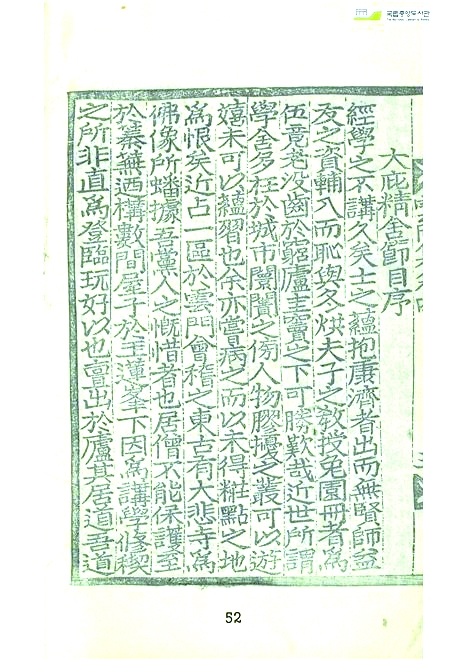 國립중앙도서관
大庇精舍節目序
經學之不講久矣士之蘊抱康濟者出而無賢師益
友之資輔入而恥與冬烘夫子之敎授兎園冊者爲
伍竟老沒齒於窮廬圭竇之下可勝歎哉近世所謂
學舍多在於城市闤闠之傍人物膠擾之叢可以遊
嬉未可以蘊習也余亦嘗病之而以未得粧點之地
爲恨矣近占一區於雲門會稽之東古有大悲寺爲
佛像所蟠據吾黨人之慨惜者也居僧不能保護至
於蓁蕪迺構數間屋子於主蓮峯下因爲講學修稧
之所非直爲登臨玩好以也亶出於廬其居道吾道
52